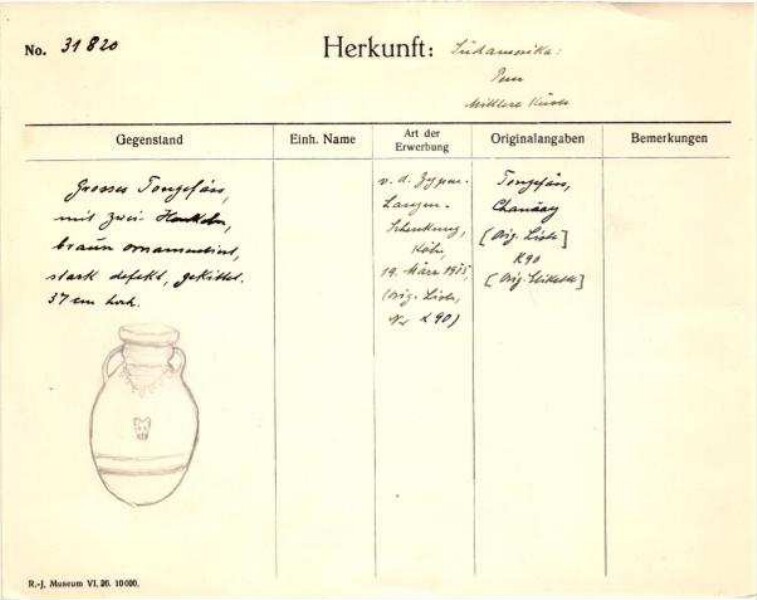 No. 31820
Herkunft: Südamerika:
Peru
Mittlere Küste
Gegenstand
Einh. Name
Art der Erwerbung
Originalangaben
Bemerkungen
Grosses Tongefäss,
mit zwei Henkeln,
braun ornamentiert,
stark defekt, gekittet.
37 cm hoch.
v. d. Zypen-
Langen-
Schenkung,
Köln,
19. März 1908,
(Orig. Liste,
Nr K90)
Tongefäss,
Chancay
[Orig. Liste]
K90
[Orig. Etikette]
R.-J. Museum VI. 20. 10000.